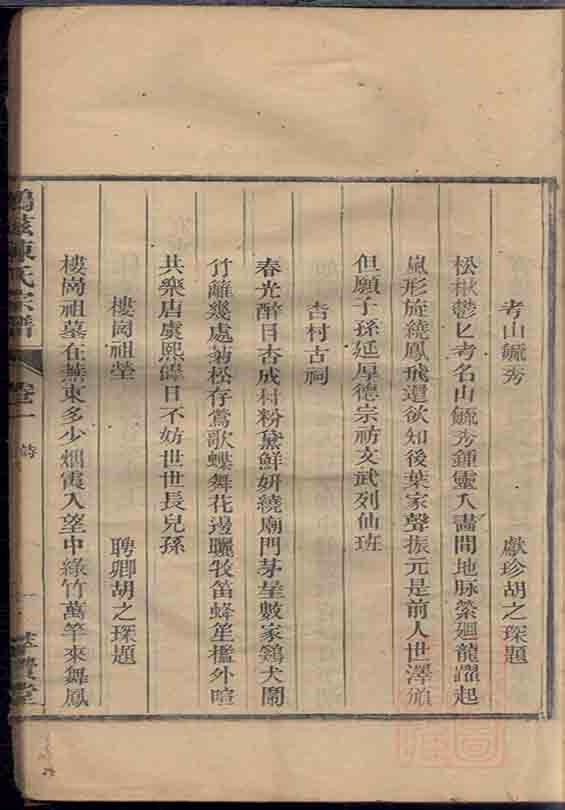 考山毓秀 獻珍胡之琛題
松楸鬱匕考名山毓秀鍾靈人畵間地脉縈廻龍躍起
嵐形旋繞鳳飛還欲知後葉家聲振元是前人世澤頒
但願子孫延厚德宗祊文武列仙班
杏村古祠
春光醉日杏成村粉黛鮮妍繞廟門茅屋數家鷄犬鬧
竹籬幾處菊松存鶯歌蝶舞花邊曬牧笛蜂笙檻外喧
共樂唐虞熙皥日不妨世世長兒孫
樓崗祖塋 聘卿胡之琛題
樓崗祖墓在蕪東多少烟霞入望中綠竹萬竿來舞鳳
鳩兹陳氏宗譜
卷一
詩
一
萃渙堂